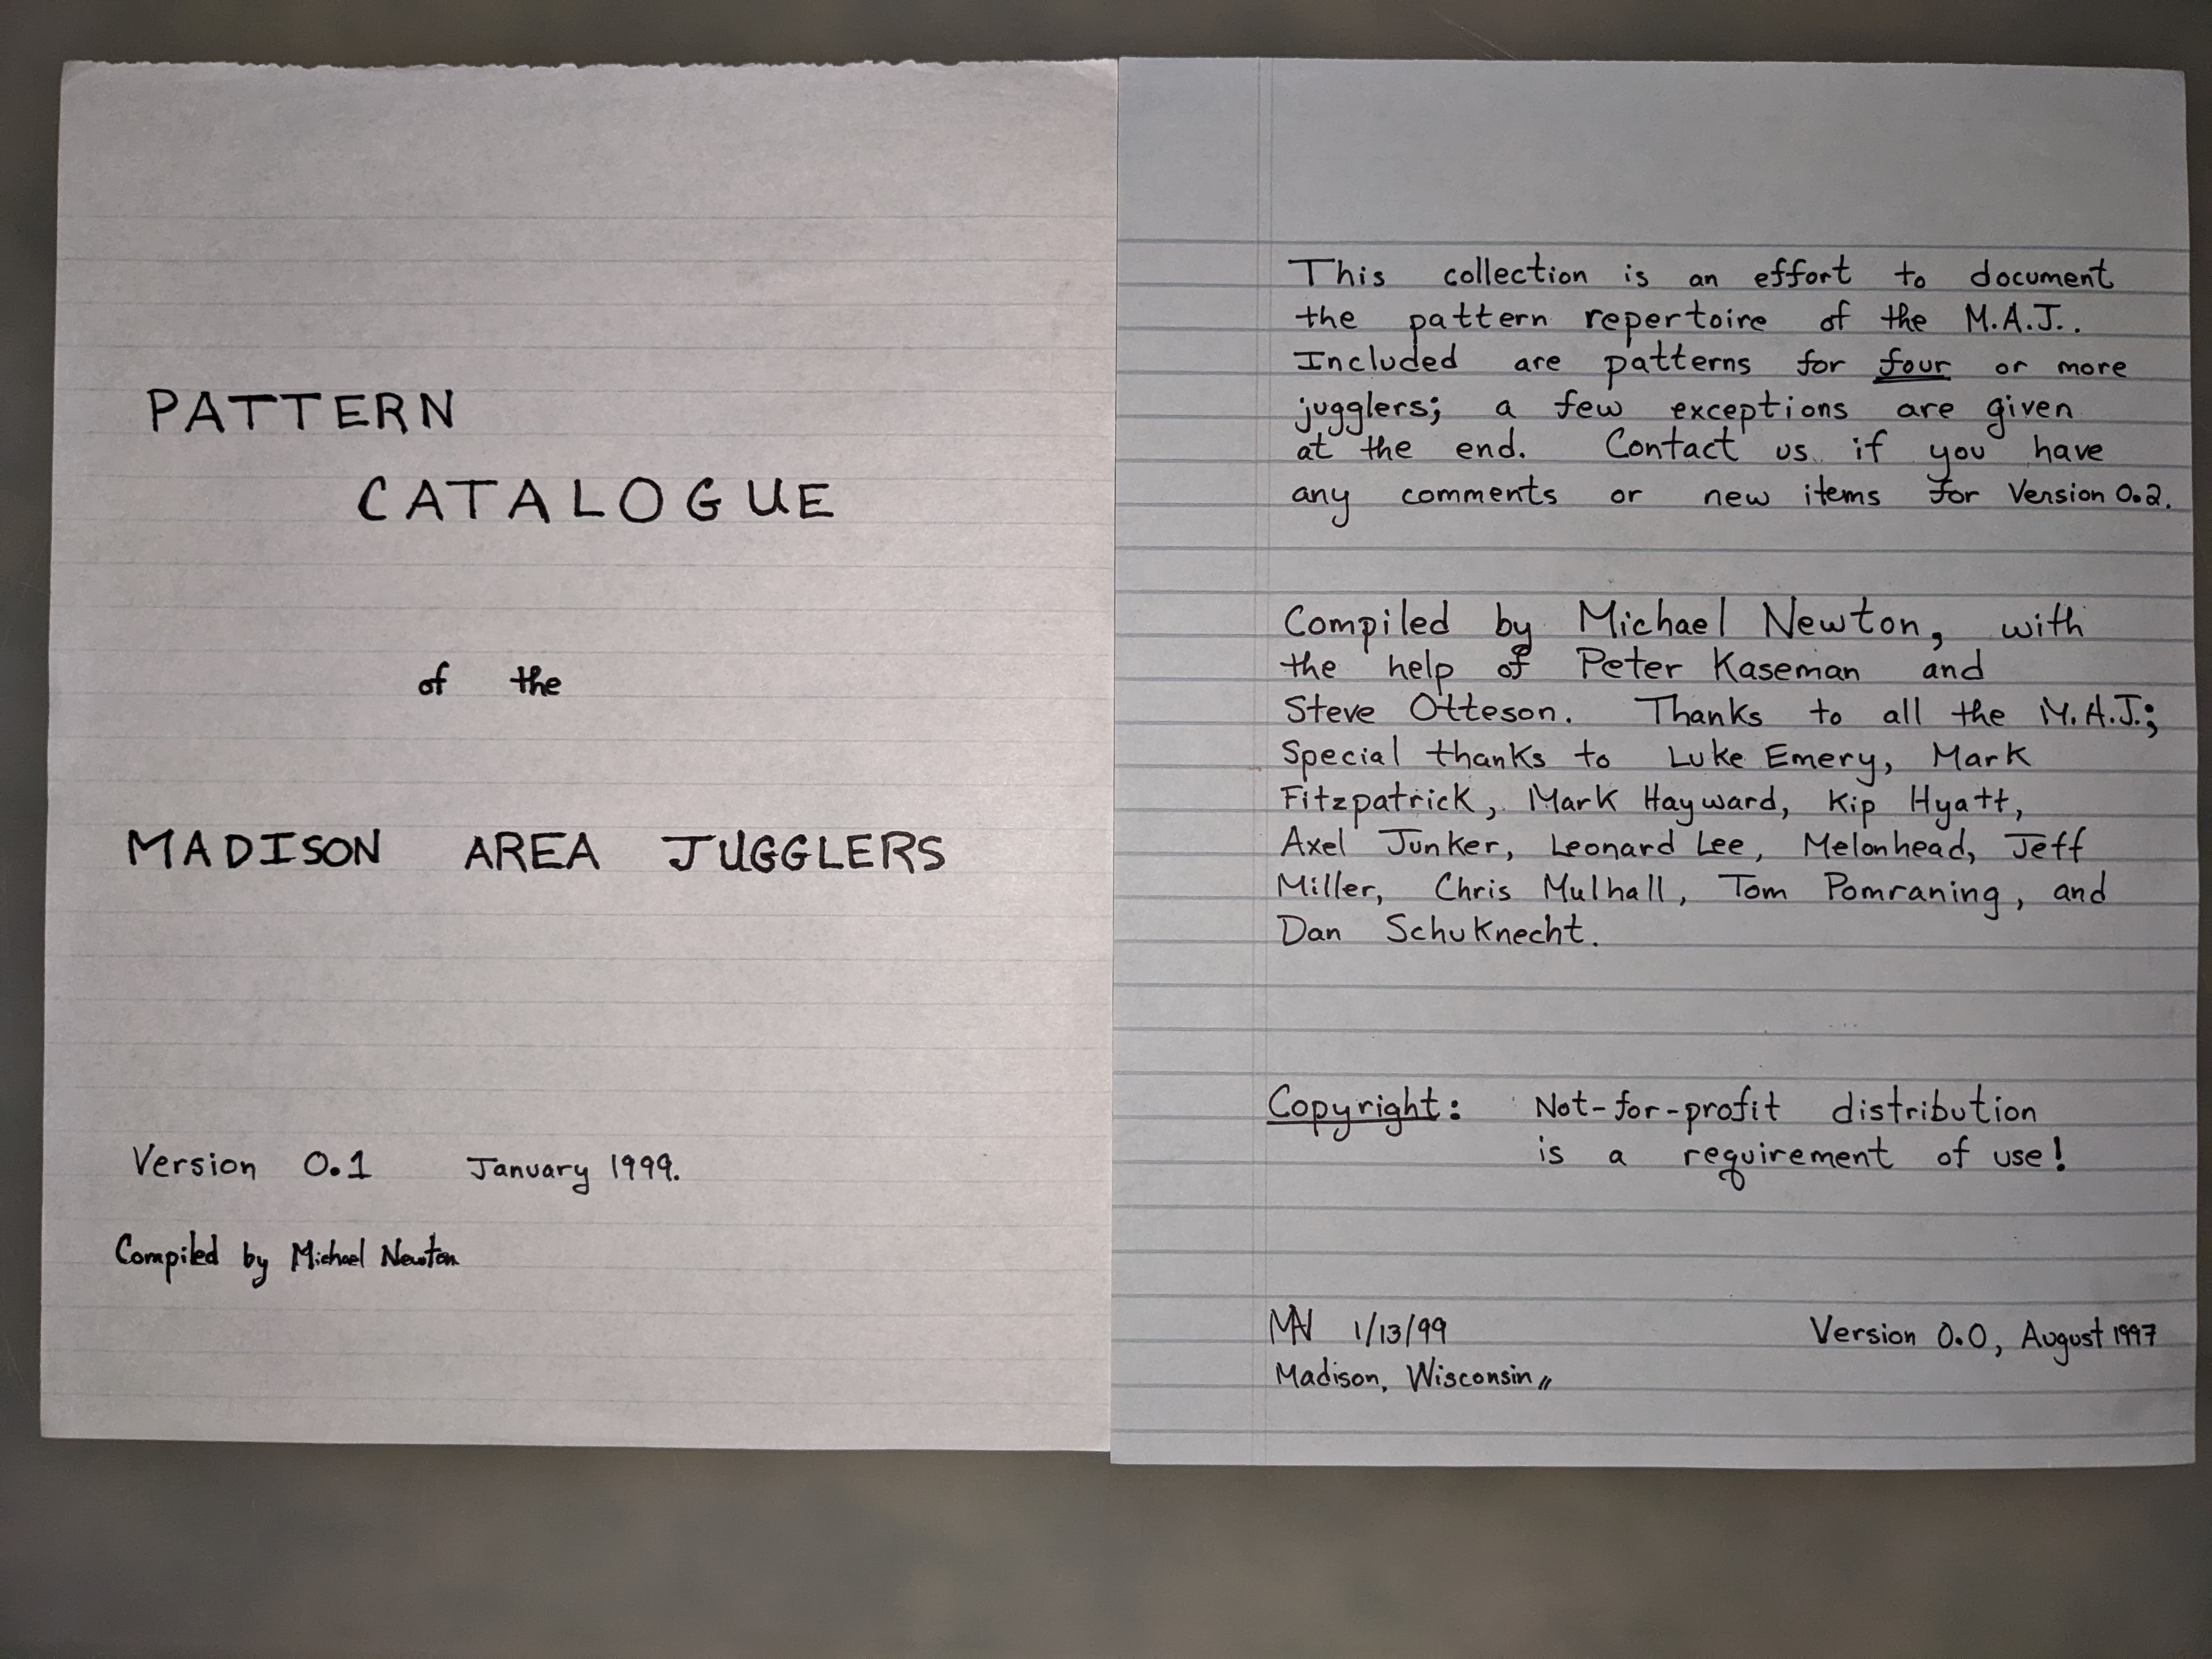 PATTERN
CATALOGUE
of the
MADISON AREA JUGGLERS
Version 0.1 January 1999.
Compiled by Michael Newton
This collection is an effort to document
the pattern repertoire of the M.A.J..
Included are patterns for four or more
jugglers; a few exceptions are given
at the end. Contact us if you have
any comments or new items for Version 0.2.
Compiled by Michael Newton, with
the help of Peter Kaseman and
Steve Otteson. Thanks to all the M.A.J.;
Special thanks to Luke Emery, Mark
Fitzpatrick, Mark Hayward, Kip Hyatt,
Axel Junker, Leonard Lee, Melonhead, Jeff
Miller, Chris Mulhall, Tom Pomraning, and
Dan Schuknecht.
Copyright: Not-for-profit distribution
is a requirement of use!
MN 1/13/99 Version 0.0, August 1997
Madison, Wisconsin